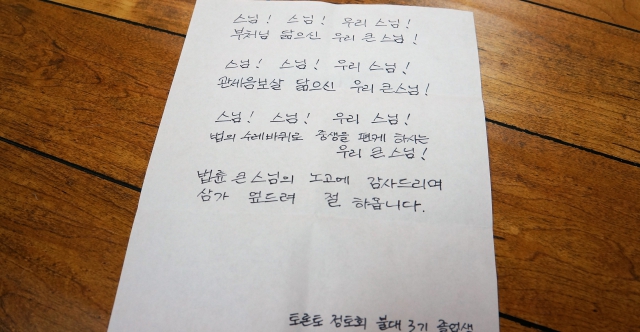 스님! 스님! 우리 스님!
부처님 닮으신 우리 큰 스님!
스님! 스님! 우리 스님!
관세음보살 닮으신 우리 큰스님!
스님! 스님! 우리 스님!
법의 수레바퀴로 중생을 편케 하시는
우리 큰 스님!
법륜 큰 스님의 노고에 감사드리며
삼가 엎드려 절 하옵니다.
토론토 정토회 불대 3기 졸업생